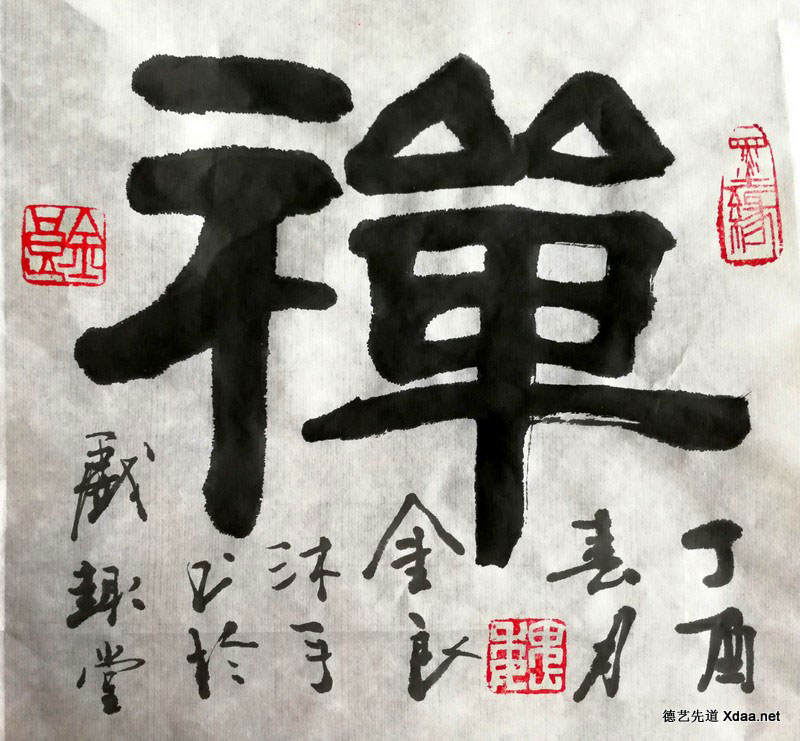 禪
丁酉
春月
金良
沐手
书於
戲趣堂
金良
德艺先道 Xdaa.net